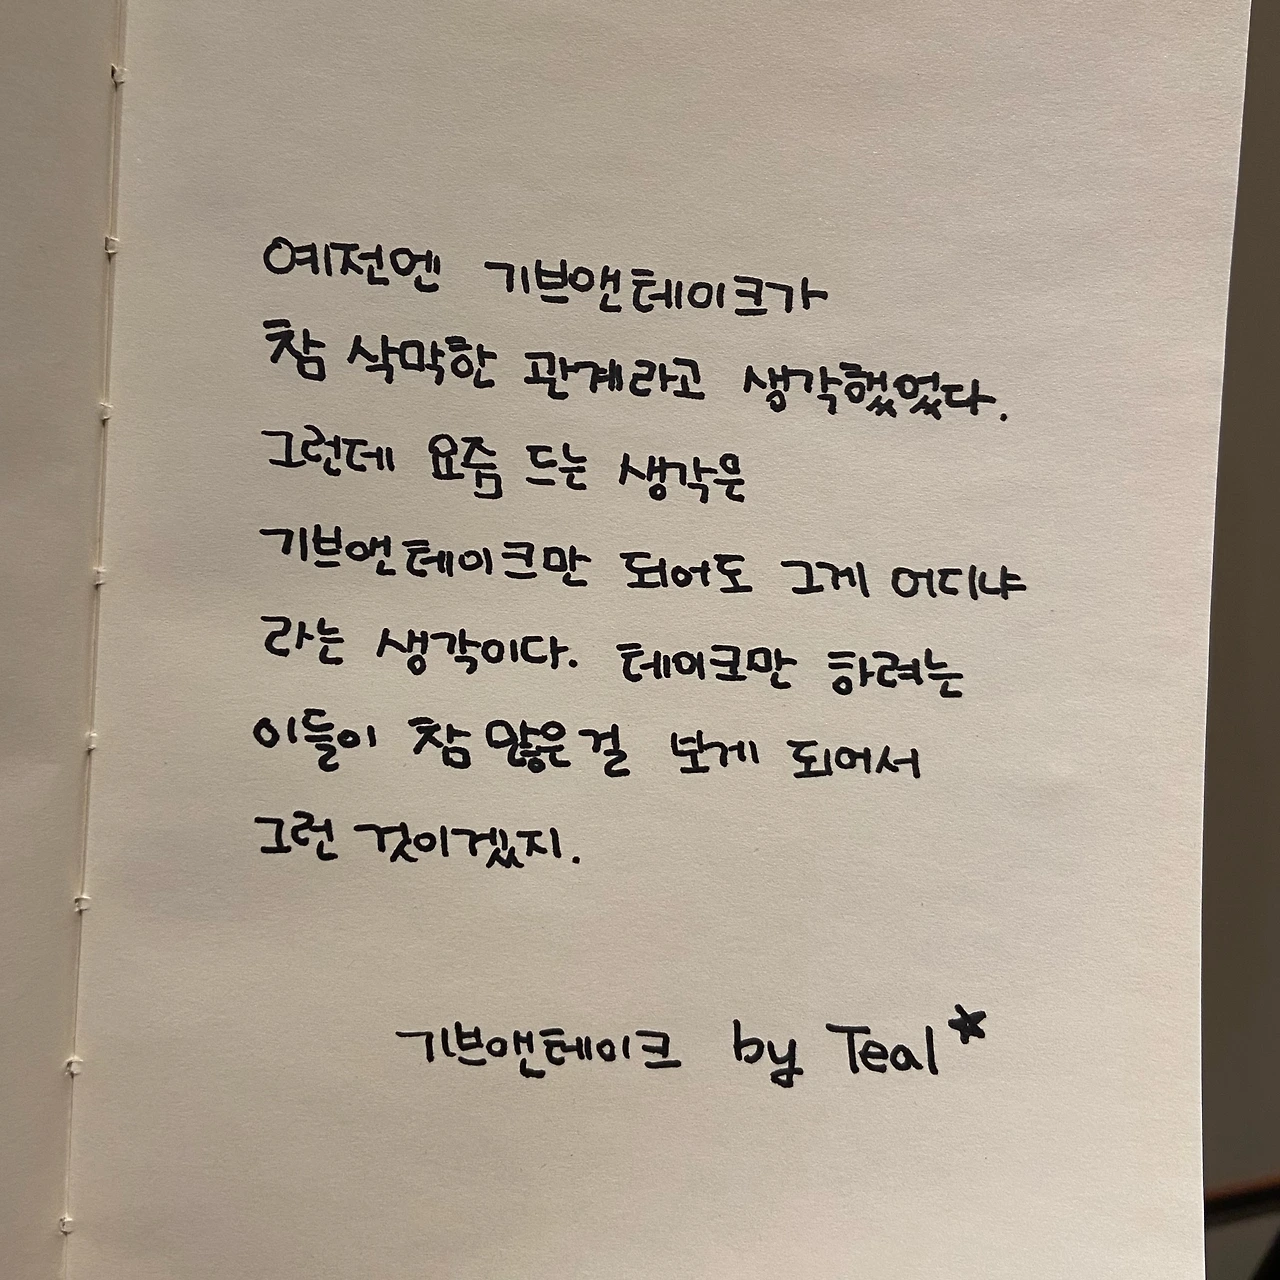 예전엔 기브앤테이크가
참 삭막한 관계라고 생각했었다.
그런데 요즘 드는 생각은
기브앤테이크만 되어도 그게 어디냐
라는 생각이다. 테이크만 하려는
이들이 참 많은걸 보게 되어서
그런 것이겠지.
기브앤테이크 by Teal*